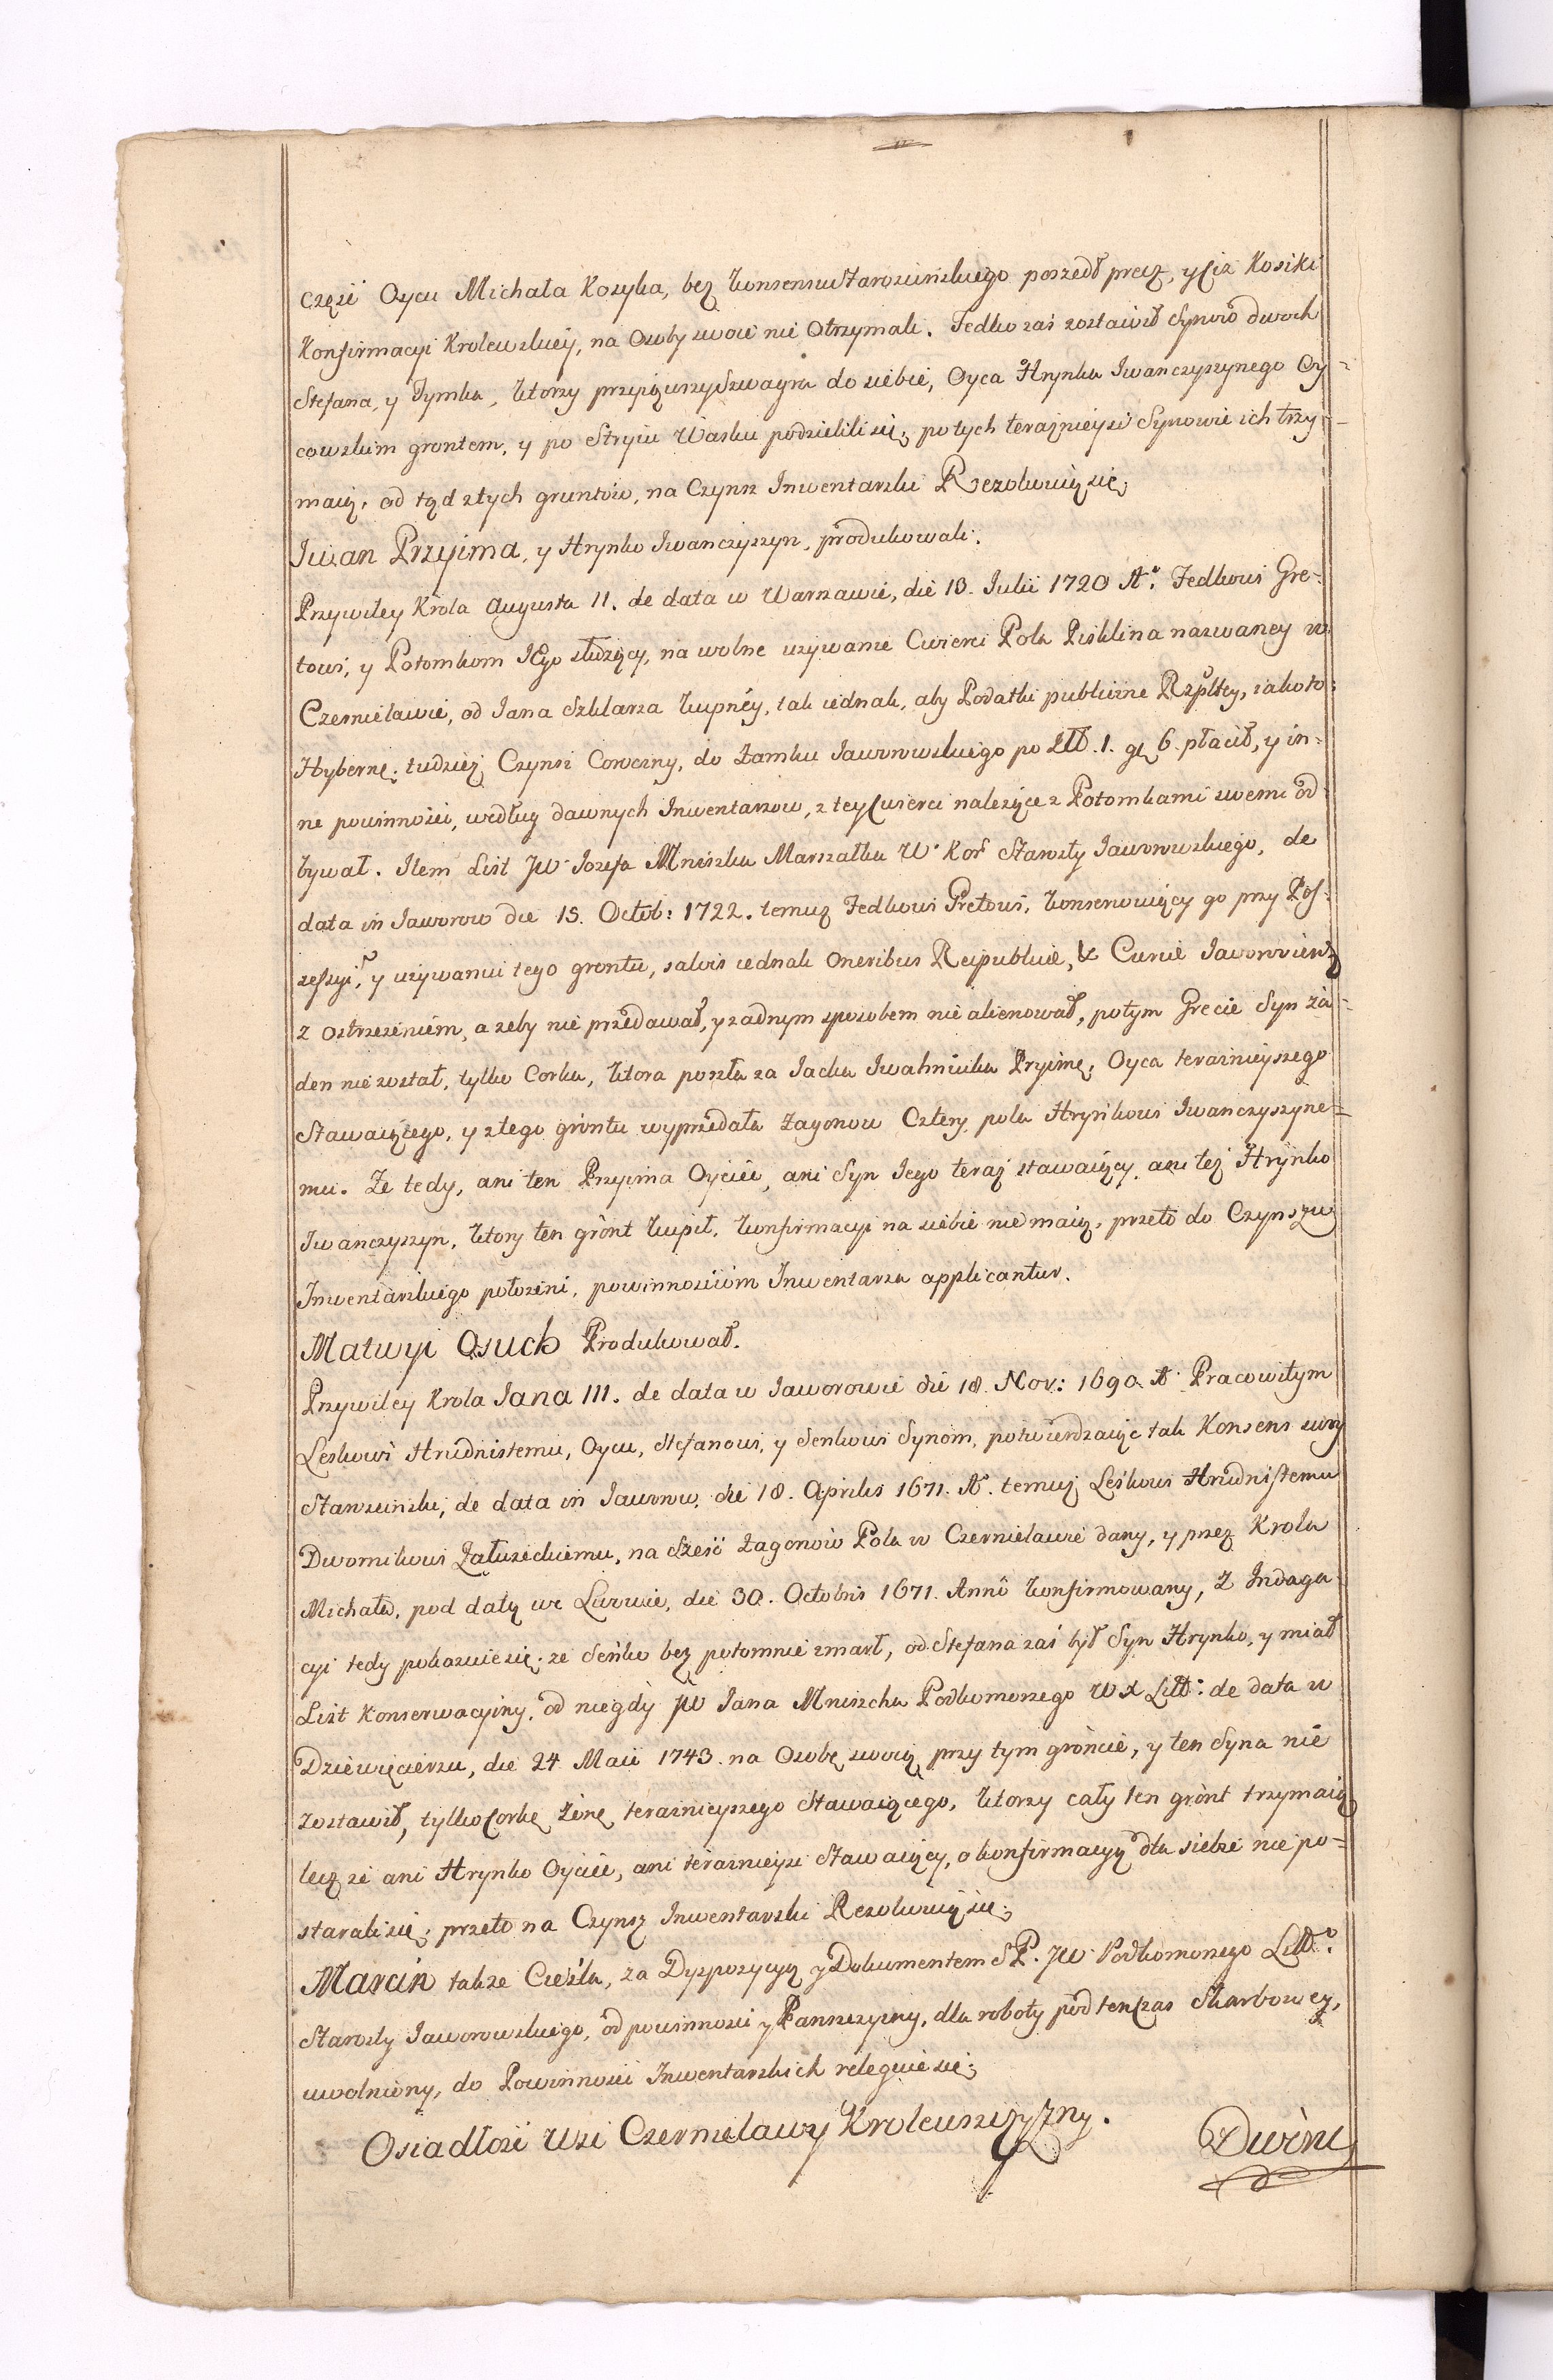 Część Oycu Michała Kosyka, bez konsensu Starościńskiego poszedł precz, y ciż Kosiki
Konfirmacyi Krolewskiey, na Osoby swoie nie Otrzymali. Fedko zas zostawił Synow dwoch
Stefana, y Tymka, ktorzy przyiąwszy Szwagra do siebie, Oyca Hrynka Iwanczyszynego Oy-
cowskim grontem, y po Stryiu Wasku podzielili się; po tych teraznieysi Synowie ich trzy-
maią, od tąd z tych gruntow, na Czynsz Inwentarski Rezolwuią się;
Iwan Przyima, y Hrynko Iwanczyszyn, produkowali.
Przywiley Krola Augusta II. de data w Warszawie, die 13. Julii 1720 Aō. Fedkowi Gre-
towi, y Potomkom Iego służący, na wolne używanie Cwierci Pola Pisklina nazwaney w
Czernielawie, od Iana Szklarza kupney, tak iednak, aby Podatki publiczne Rzpltey, iako to:
Hybernę; tudzież Czynsz Coroczny, do Zamku Iaworowskiego po Zł. 1. gr 6. płacił, y in-
ne powinności, według dawnych Inwentarzow, z tey Cwierci należące z Potomkami swemi od
bywał. Item List JW Iozefa Mniszka Marszałka W. Kor. Starosty Iaworowskiego, de
data in Iaworow die 15. Octob: 1722. temuż Fedkowi Gretowi, konserwuiący go przy Pos-
sessyi, y używaniu tego grontu, salvis iednak Oneribus Reipublicae, & Curiae Iavoroviensis
z ostrzeżeniem, a żeby nie przedawał, y żadnym sposobem nie alienował, potym Grecie Syn ża-
den nie został, tylko Corka, ktora poszła za Iacka Iwahniuka Pryimę, Oyca teraznieyszego
Stawaiącego, y z tego grontu wyprzedała Zagonow Cztery pola Hrynkowi Iwanczyszyne-
mu. Ze tedy, ani ten Przyima Oyciec, ani Syn Iego teraz stawaiący, ani też Hrynko
Iwanczyszyn, ktory ten gront kupił, konfirmacyi na siebie nie maią, przeto do Czynszu
Inwentarskiego położeni, powinnościom Inwentarza applicantur.
Matwyi Osuch Produkował.
Przywiley Krola Iana III. de data w Iaworowie die 18. Nov: 1690. Aō Pracowitym
Leskowi Hrudnistemu, Oycu, Stefanowi, y Senkowi Synom, potwierdzaiąc tak Konsens
Starościnski, de data in Iaworow, die 18. Aprilis 1671. Aō. temuż Leskowi Hrudnistemu
Dwornikowi Załuzeckiemu, na Sześć Zagonow Pola w Czernielawie dany, y przez Krola
Michała, pod datą we Lwowie, die 30. Octobris 1671. Anno konfirmowany, Z Indaga-
cyi tedy pokazuie się; że Seńko bez potomnie zmarł, od Stefana zaś był Syn Hrynko, y miał
List Konserwacyiny, od niegdy JW Iana Mniszcha Podkomorzego W X Litt: de data w
Dziewięcierzu, die 24 Maii 1743. na Osobę swoią przy tym groncie, y ten Syna nie
zostawił, tylko Corkę Żonę teraznieyszego Stawaiącego, ktorzy cały ten gront trzymaią
lecz że ani Hrynko Oyciec, ani teraznieysi Stawaiący, o konfirmacyą dla siebie nie po-
starali się; przeto na Czynsz Inwentarski Rezolwuią się;
Marcin także Cieśla, za Dyspozycyą y Dokumentem S P. JW Podkomorzego Litt.
Starosty Iaworowskiego, od powinności y Panszczyzny, dla roboty pod ten czas Skarbowey,
uwolniony, do Powinności Inwentarskich releguie się;
Osiadłość Wsi Czernielawy Krolewszczyzny.
Dwòrne